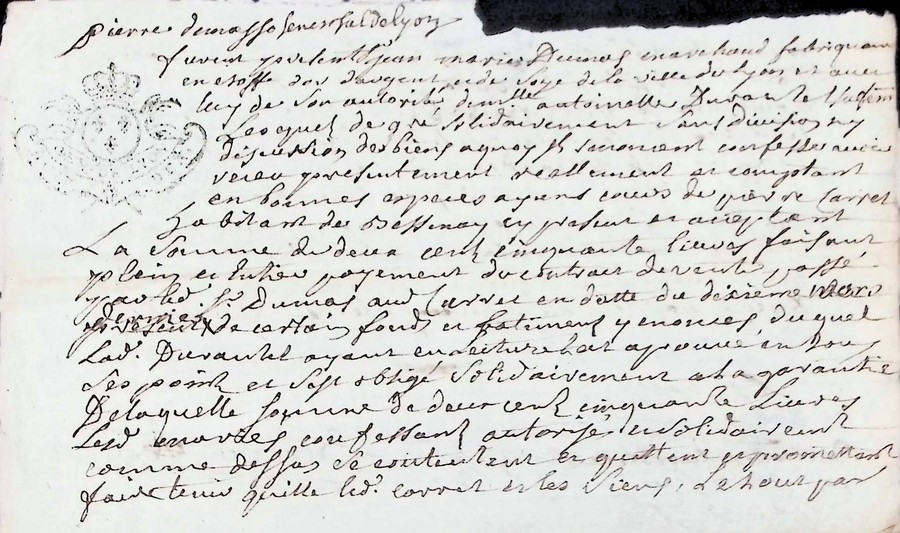 Pierre dumas Senechal de Lyon
furent presents Sr jean marie Dumas marchand fabriquant
en etoffe dor dargent et de soye de la ville de Lyon et avec
luy de son autorité demlle antoinette Durantel sa fem
Lesquels de gré solidairement sans division ny
discussion de biens a quoy ils renoncent confesse avoir
receu presentement reellement et comptant
en bonnes especes ayant cours de pierre Carret
habitant de Bessenay icy present et acceptant
La somme de deux cent cinquante livres faisant
plein et Entier payement du contrat de vente passé
par led. Sr Dumas aud. Carret en datte du dixieme mars
dernier
present de certain fonds et batiment y enonces, duquel
Lad. Durantel ayant eu lecture La aprouvé en tous
ses points et sest obligé solidairement a la garantie
De laquelle somme de deux cent cinquante Livres
Lesd mariés confessant autorisé et solidairement
comme dessus se contentent et quittent et promettent
faire tenir quitte led. carret et les siens, Le tout par